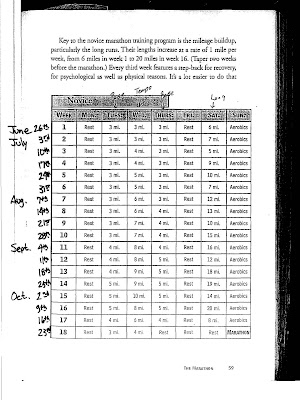 Key to the novice marathon training program is the mileage buildup,
particularly the long runs. Their lengths increase at a rate of 1 mile per
week, from 6 miles in week 1 to 20 miles in week 16. (Taper two weeks
before the marathon.) Every third week features a step-back for recovery,
for psychological as well as physical reasons. It's a lot easier to do that
Tempo
Novice Long
WEEK MON. TUES. WED. THURS. FRI. SAT. SUN.
June 26th 1 Rest 3 mi. 3 mi. 3 mi. Rest 6 mi. Aerobics
July 3rd 2 Rest 3 mi. 3 mi. 3 mi. Rest 7 mi. Aerobics
10th 3 Rest 3 mi. 4 mi. 3 mi. Rest 5 mi. Aerobics
17th 4 Rest 3 mi. 4 mi. 3 mi. Rest 9 mi. Aerobics
5 Rest 3 mi. 5 mi. 3 mi. Rest 10 mi. Aerobics
31st 6 Rest 3 mi. 5 mi. 3 mi. Rest 7 mi. Aerobics
Aug. 7th 7 Rest 3 mi. 6 mi. 3 mi. Rest 12 mi. Aerobics
14th 8 Rest 3 mi. 6 mi. 4 mi. Rest 13 mi. Aerobics
21st 9 Rest 3 mi. 7 mi. 4 mi. Rest 10 mi. Aerobics
28th 10 Rest 3 mi. 7 mi. 4 mi. Rest 15 mi. Aerobics
Sept. 4th 11 Rest 4 mi. 8 mi. 4 mi. Rest 16 mi. Aerobics
11th 12 Rest 4 mi. 8 mi. 5 mi. Rest 12 mi. Aerobics
18th 13 Rest 4 mi. 9 mi. 5 mi. Rest 18 mi. Aerobics
14 Rest 5 mi. 9 mi. 5 mi. Rest 19 mi. Aerobics
Oct. 2nd 15 Rest 5 mi. 10 mi. 5 mi. Rest 14 mi. Aerobics
9th 16 Rest 5 mi. 8 mi. 5 mi. Rest 20 mi. Aerobics
16th 17 Rest 4 mi. 6 mi. 4 mi. Rest 8 mi. Aerobics
23rd 18 Rest 3 mi. 4 mi. Rest Rest Rest Marathon
THE MARATHON 59